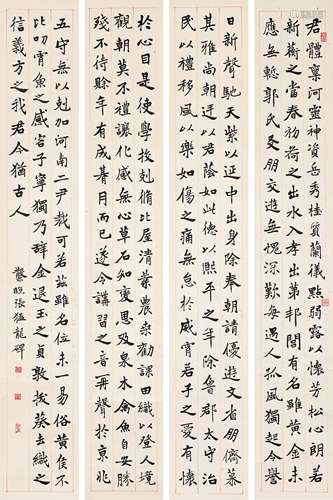 君體稟河靈神資岳秀桂質蘭儀點弱露以懷芳松心朗若
新蘅之當春初荷之出水入孝出第邦閭有名雖黃金未
應無慙郭氏交朋交遊無愧深歎每遇人孤風獨起令譽
日新聲馳天紫以延中出身除奉朝請優遊文省朋儕慕
其雅尚朝廷以君蔭如此德以熙平之年除魯郡太守治
民以禮移風以樂如傷之痛無怠於夙宵若子之愛有懷
於心目是使學挍剋脩比屋清業農桑勸課田織以登入境
觀朝莫不禮讓化感無心草石知變恩及泉水禽魚自安勝
殘不待賒年有成朞月而已遂令講習之音一再聲於京兆
五守無以剋加河南二尹裁可若茲雖名位未易俗黃侯不
比以明宵魚之感宓子寧獨乃辞金退玉之貞敦拔葵去織之
信義方之我君今猶古人
張猛龍碑